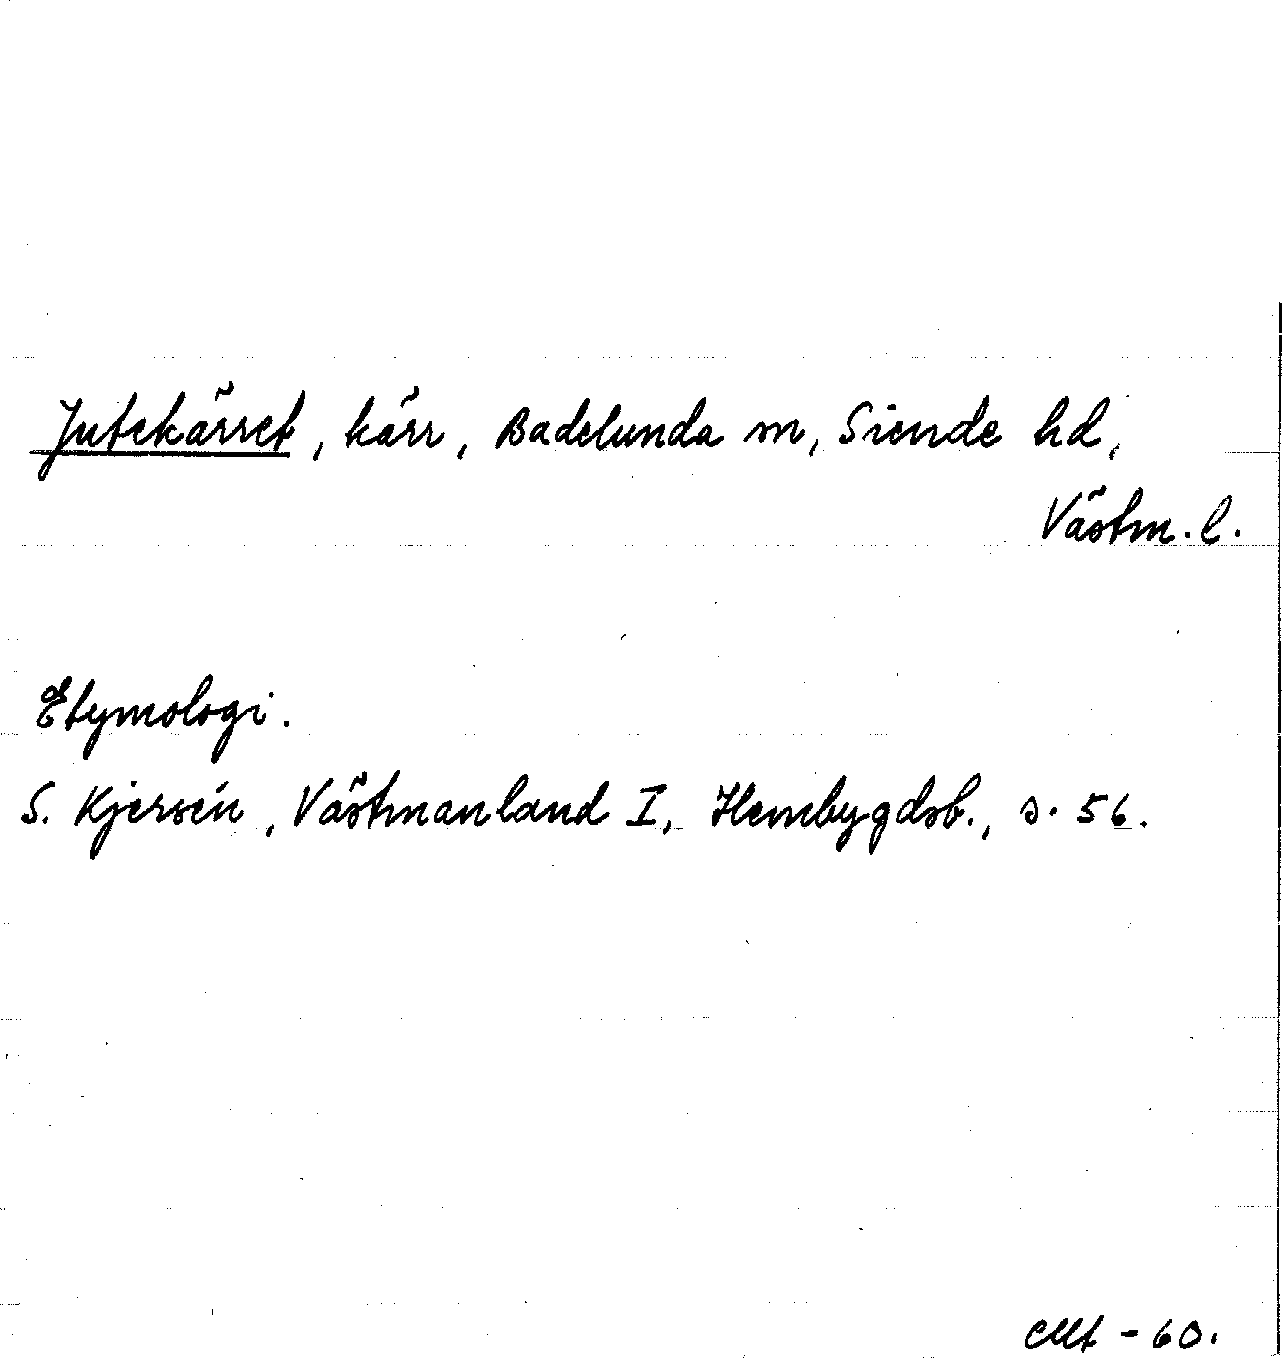 Jutekärret, kärr, Badelunda sn, Siende hd,
Västm. l.
Etymologi.
S. Kjersén, Västmanland I, Hembygdsb., s. 56.
- 60.